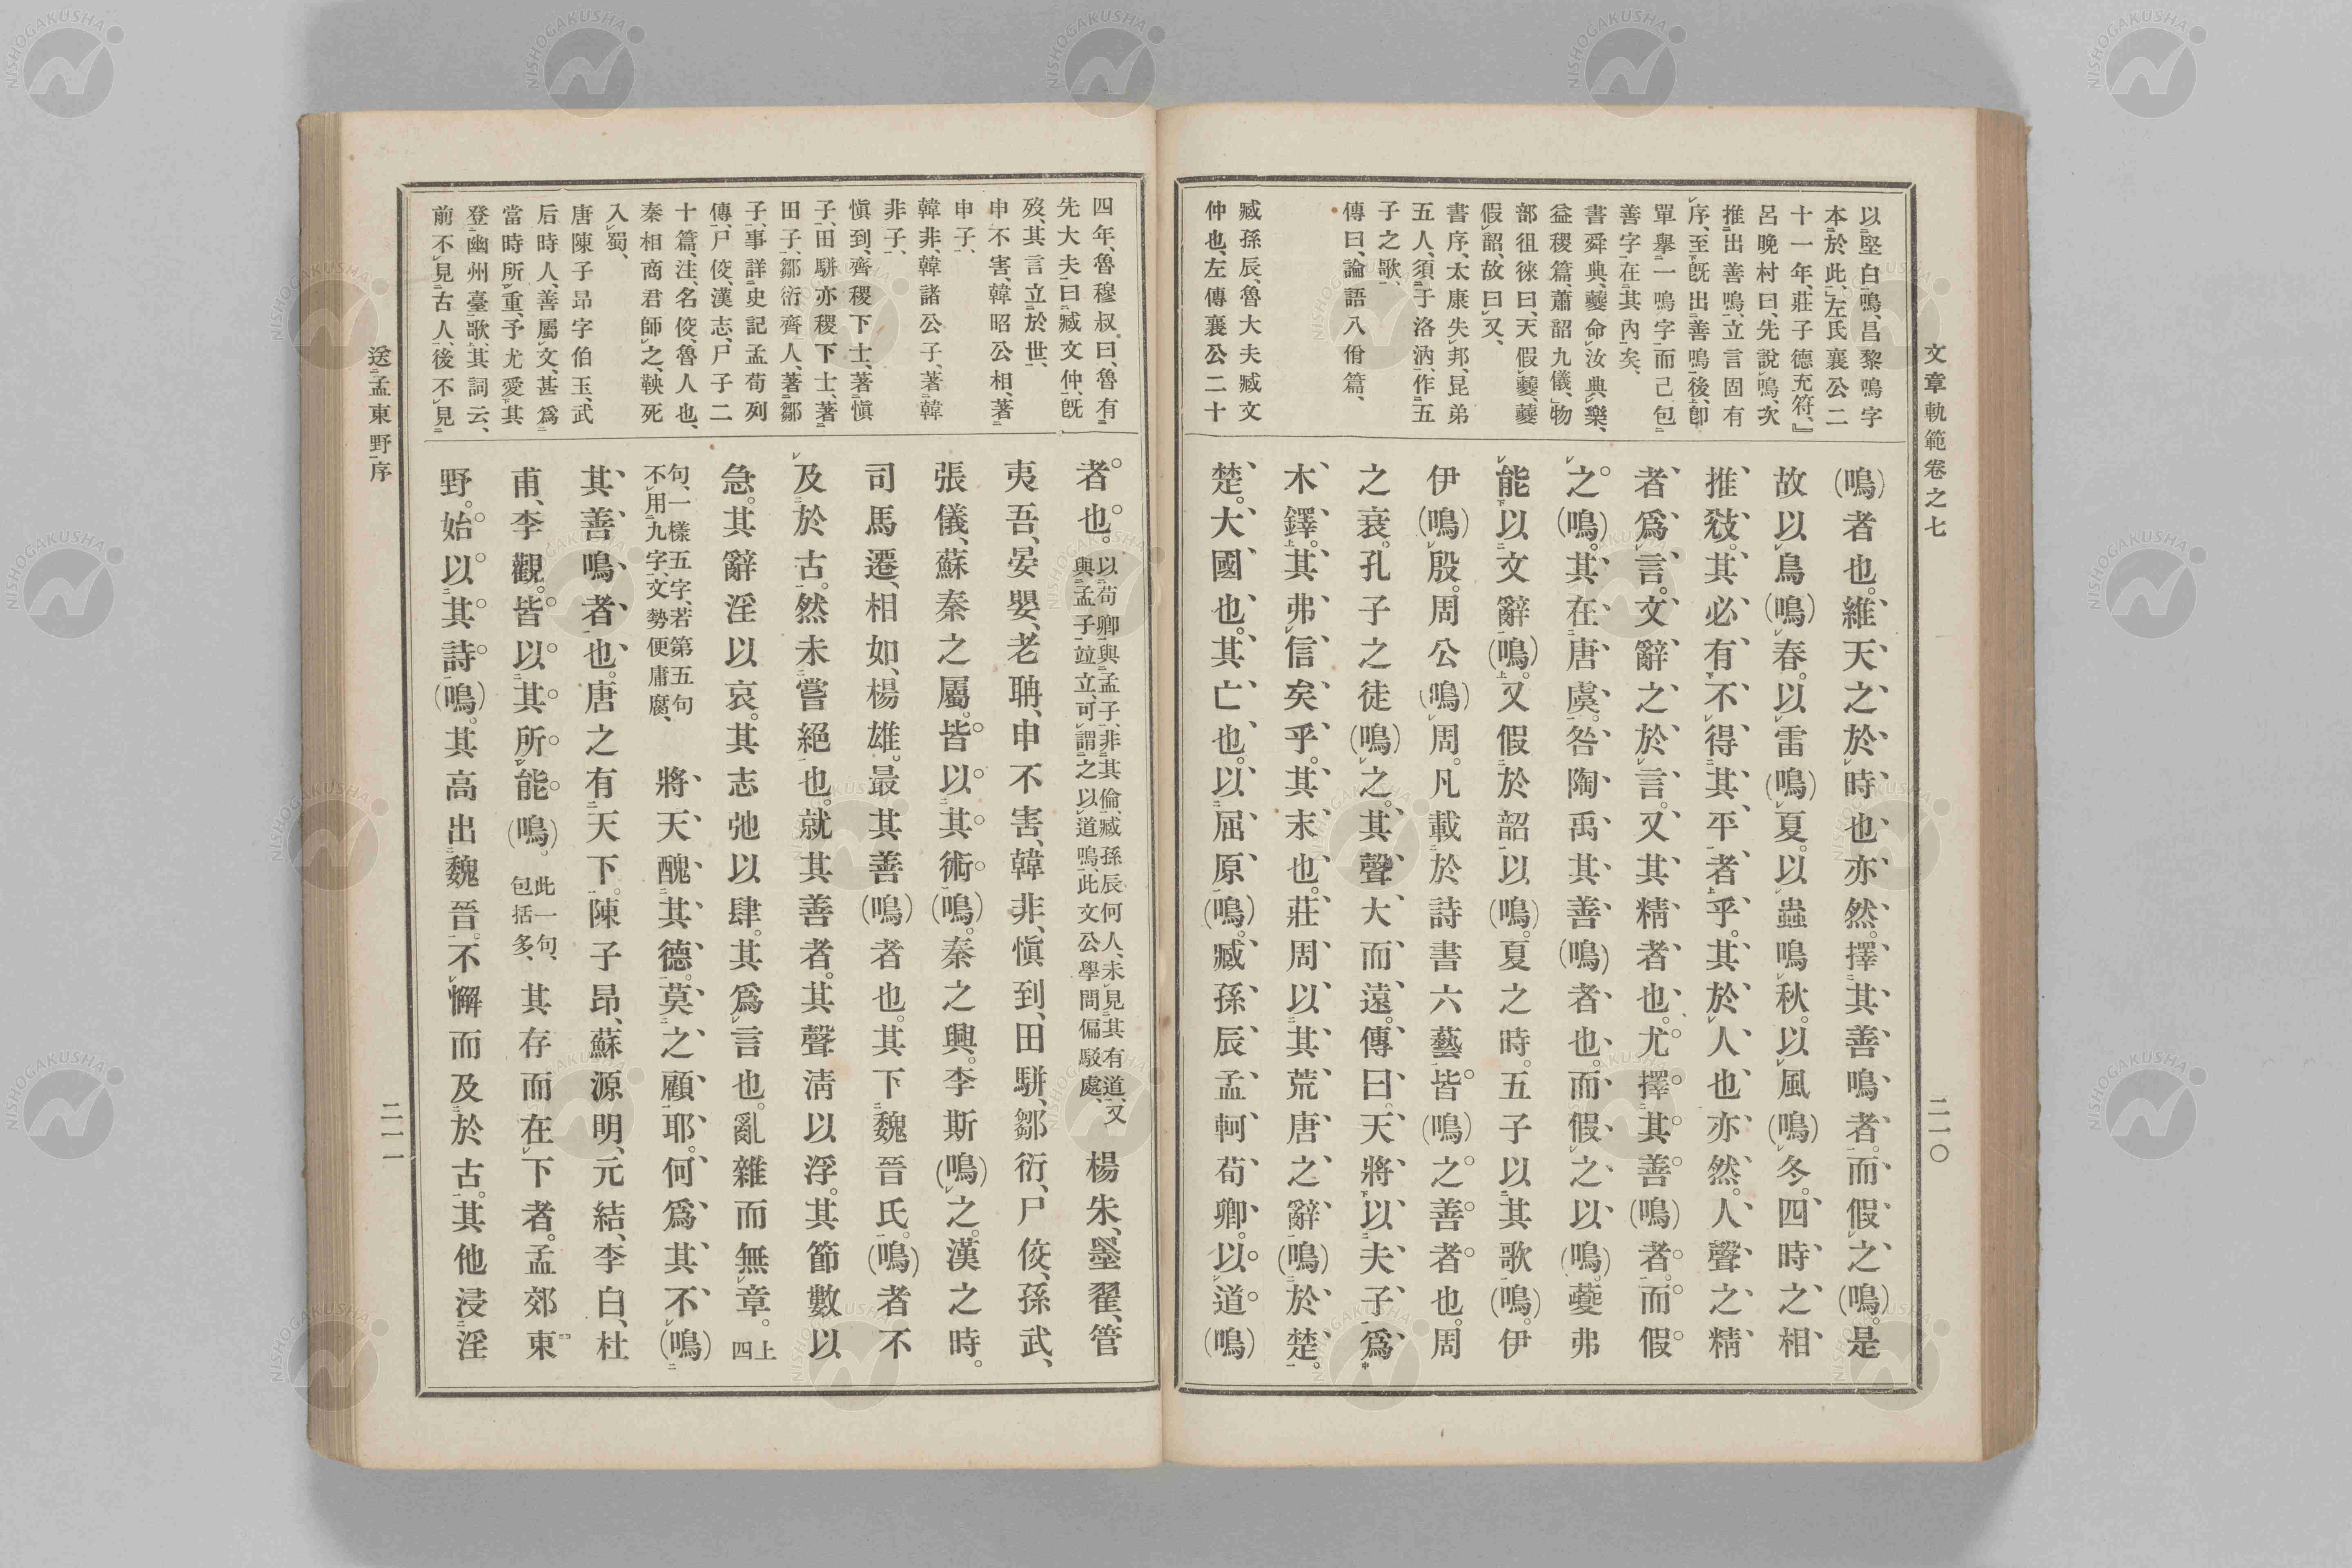 文章軌範卷之七
二一〇
以堅白鳴、昌黎鳴字
本於此、左氏襄公二
十一年、莊子德充符、』
呂晚村曰、先說鳴、次
推出善鳴、立言固有
序、至旣出善鳴後、卽
單擧一鳴字、而己包
善字在其內矣、
書舜典、夔命汝典樂、
益稷篇、蕭韶九儀、物
部徂徠曰、天假夔、夔
假韶、故曰又、
書序、太康失邦、昆弟
五人、須于洛汭、作五
子之歌、
傳曰、論語八佾篇、
臧孫辰、魯大夫臧文
仲也、左傳襄公二十
(鳴)者也。維天之於時也亦然。擇其善鳴者。而假之(鳴)。是
故以鳥(鳴)春。以雷(鳴)夏。以蟲鳴秋。以風(鳴)冬。四時之相
推敓。其必有不得其平者乎。其於人也亦然。人聲之精
者爲言。文辭之於言。又其精者也。尤擇其善(鳴)者。而假
之(鳴)。其在唐虞。咎陶禹其善(鳴)者也。而假之以(鳴)。夔弗
能以文辭(鳴)。又假於韶以(鳴)。夏之時。五子以其歌(鳴)。伊
伊(鳴)殷。周公(鳴)周。凡載於詩書六藝。皆(鳴)之善者也。周
之衰。孔子之徒(鳴)之。其聲大而遠。傳曰。天將以夫子爲
木鐸。其弗信矣乎。其末也。莊周以其荒唐之辭(鳴)於楚。
楚。大國也。其亡也。以屈原(鳴)。臧孫辰孟軻荀卿。以道(鳴)
四年、魯穆叔曰、魯有
先大夫、曰臧文仲、旣
歿、其言立於世、
申不害、韓昭公相、著
申子、
韓非、韓諸公子、著韓
非子、
愼到、齊稷下士、著愼
子、田駢亦稷下士、著
田子、鄒衍齊人、著鄒
子、事詳史記孟荀列
傳、尸佼、漢志、尸子二
十篇、注、名佼、魯人也、
秦相商君師之、鞅死
入蜀、
唐陳子昂字伯玉、武
后時人、善屬文、甚爲
當時所重、予尤愛其
登幽州臺歌、其詞云、
前不見古人、後不見
者也。以荀卿與孟子、非其倫、臧孫辰何人、未見其有道、又
與孟子竝立、可謂之以道鳴、此文公學問偏駁處、楊朱、墨翟、管
夷吾、晏嬰、老聃、申不害、韓非、愼到、田駢、鄒衍、尸佼、孫武、
張儀、蘇秦之屬。皆以其術(鳴)。秦之興。李斯(鳴)之。漢之時。
司馬遷、相如、楊雄。最其善(鳴)者也。其下魏晉氏。(鳴)者不
及於古。然未嘗絕也。就其善者。其聲淸以浮。其節數以
急。其辭淫以哀。其志弛以肆。其爲言也。亂雜而無章。上四
句、一樣五字、若第五句
不用九字、文勢便庸腐、將天醜其德。莫之顧耶。何爲其不(鳴)
其善鳴者也。唐之有天下。陳子昂、蘇源明、元結、李白、杜
甫、李觀。皆以其所能(鳴)。此一句、
包括多、其存而在下者。孟郊東
野。始以其詩(鳴)。其高出魏晉。不懈而及於古。其他浸淫
送孟東野序
二一一